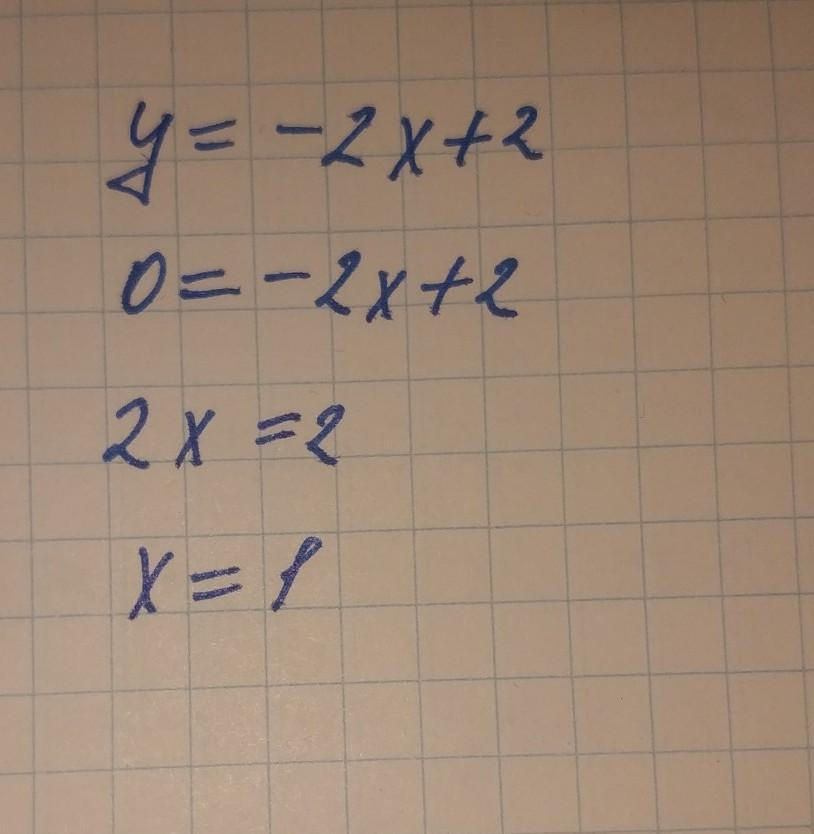 y = -2x+2
0 = -2x+2
2x = 2
x = 1